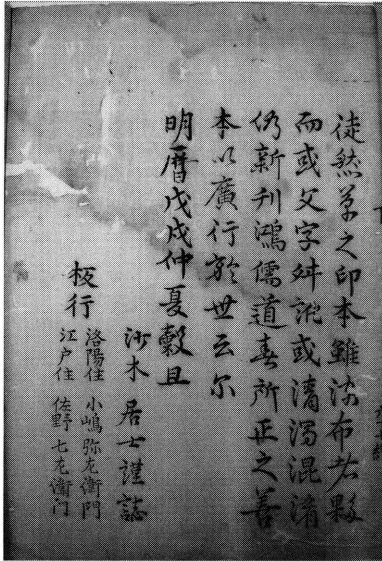 徒然草之印本雖流布者夥
而或文字舛訛或清濁混淆
仍新刊鴻儒道春所正之善
本以廣行於世云尓
明暦戊戌仲夏穀旦
沙木居士謹誌
板行
洛陽住 小嶋弥左衛門
江戸住 佐野七左衛门